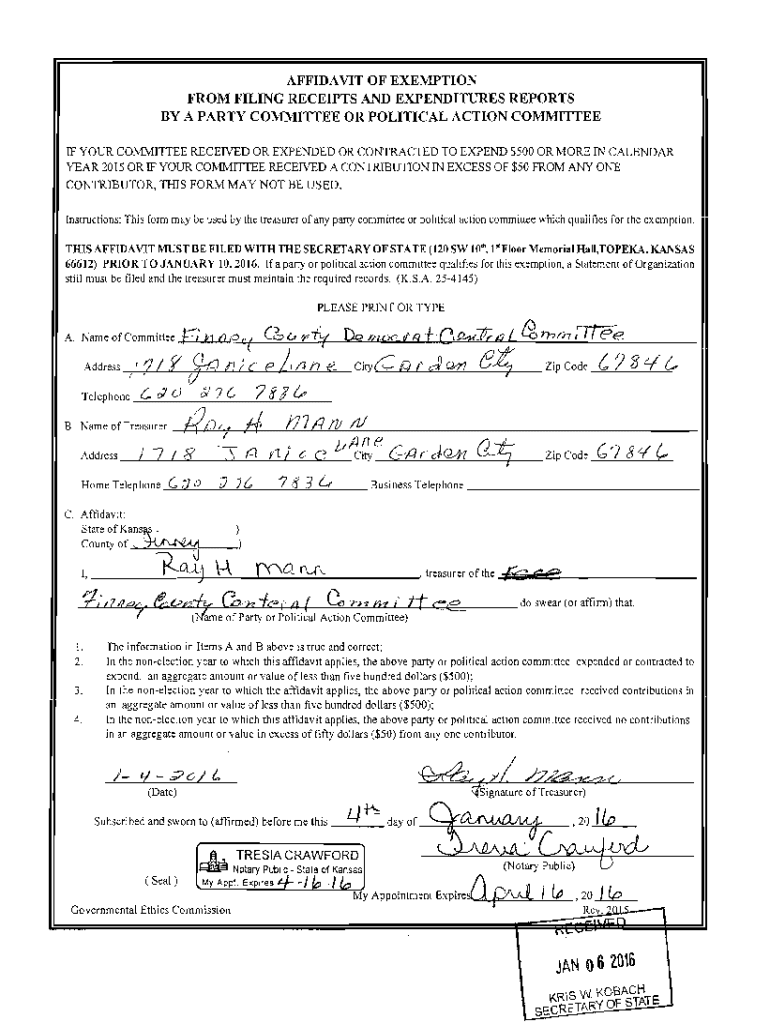 AFFIDAVIT OF EXEMPTION
FROM FILING RECEIPTS AND EXPENDITURES REPORTS
BY A PARTY COMMITTEE OR POLITICAL ACTION COMMITTEE
IF YOUR COMMITTEE RECEIVED OR EXPENDED OR CONTRACTED TO EXPEND $500 OR MORE IN CALENDAR
YEAR 2015 OR IF YOUR COMMITTEE RECEIVED A CONTRIBUTION IN EXCESS OF $50 FROM ANY ONE
CONTRIBUTOR, THIS FORM MAY NOT BE USED.
Instructions: This form may be used by the treasurer of any party committee or political action committee which qualifies for the exemption.
THIS AFFIDAVIT MUST BE FILED WITH THE SECRETARY OF STATE (120 SW 10th, 1st Floor Memorial Hall, TOPEKA, KANSAS
66612) PRIOR TO JANUARY 10, 2016. If a party or political action committee qualifies for this exemption, a Statement of Organization
still must be filed and the treasurer must maintain the required records. (K.S.A. 25-4145)
PLEASE PRINT OR TYPE
A. Name of Committee Finney County Democrat Central Committee
Address 1718 Janice Lane City Garden City Zip Code 67846
Telephone 620 276 7836
B. Name of Treasurer Ray H Mann
Address 1718 Janice Lane City Garden City Zip Code 67846
Home Telephone 620 276 7836 Business Telephone
C. Affidavit:
State of Kansas )
County of Finney )
I, Ray H Mann, treasurer of the
Finney County Conteral Committee do swear (or affirm) that:
(Name of Party or Political Action Committee)
1. The information in Items A and B above is true and correct;
2. In the non-election year to which this affidavit applies, the above party or political action committee expended or contracted to
expend an aggregate amount or value of less than five hundred dollars ($500);
3. In the non-election year to which the affidavit applies, the above party or political action committee received contributions in
an aggregate amount or value of less than five hundred dollars ($500);
4. In the non-election year to which this affidavit applies, the above party or political action committee received no contributions
in an aggregate amount or value in excess of fifty dollars ($50) from any one contributor.
1-4-2016 Ray H. Mann
(Date) (Signature of Treasurer)
Subscribed and sworn to (affirmed) before me this 4th day of January, 2016
Tresia Crawford
(Notary Public)
TRESIA CRAWFORD
Notary Public - State of Kansas
(Seal) My Appt. Expires 4-16-16
My Appointment Expires April 16, 2016
Governmental Ethics Commission Rev. 2015
RECEIVED
JAN 06 2016
KRIS W. KOBACH
SECRETARY OF STATE